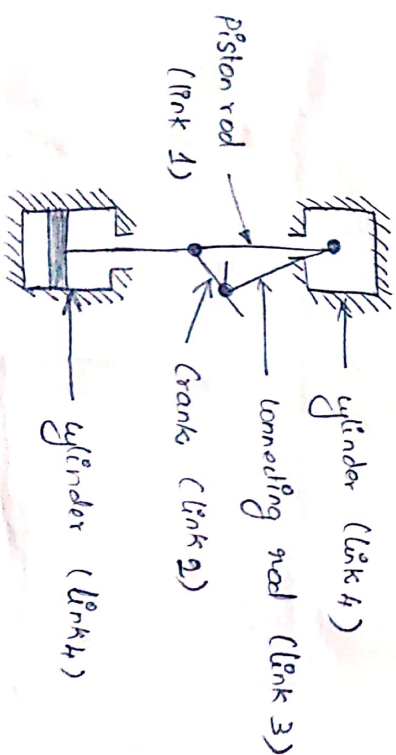 Piston rod
(link 1)
cylinder (link 4)
connecting rod (link 3)
Crank (link 2)
cylinder (link 4)